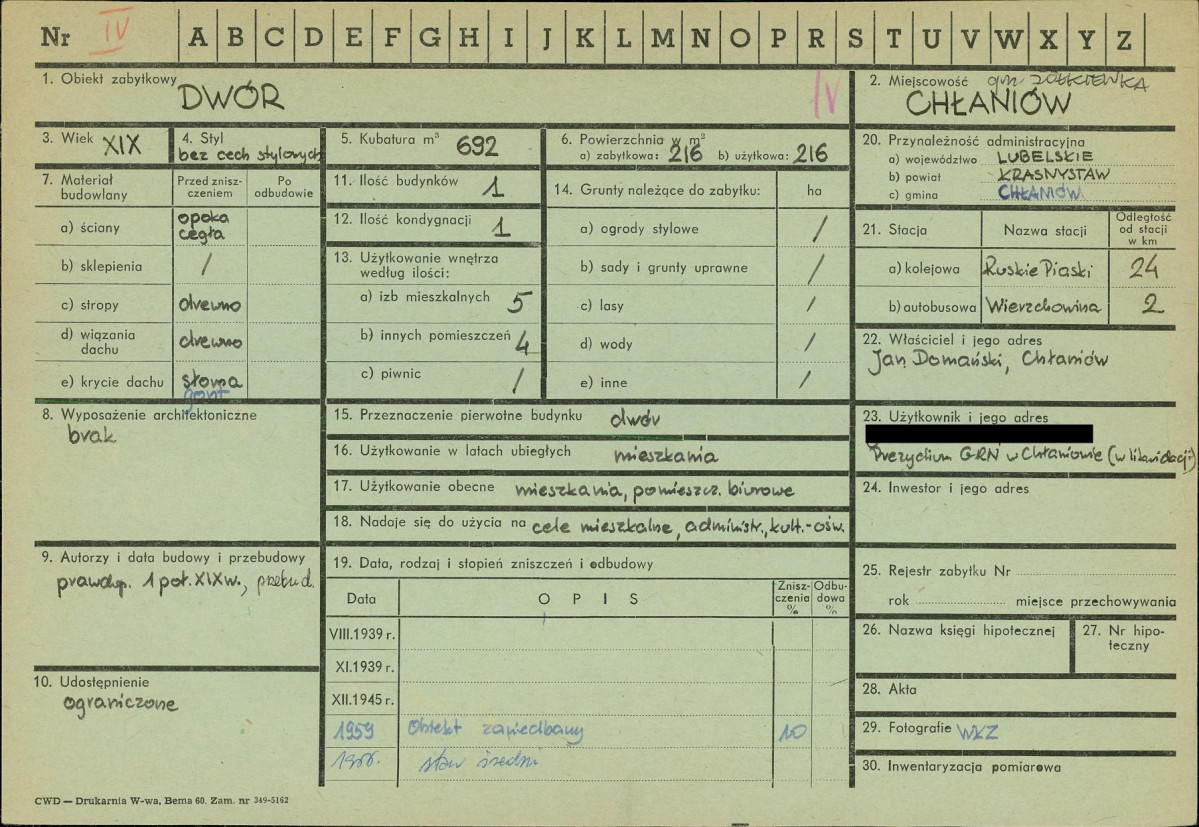 Nr IV A B C D E F G H I J K L M N O P R S T U V W X Y Z
1. Obiekt zabytkowy
DWÓR
IV
2. Miejscowość gm ŻÓŁKIEWKA
CHŁANIÓW
3. Wiek XIX
4. Styl
bez cech stylowych
5. Kubatura m³ 692
6. Powierzchnia w m²
a) zabytkowa: 216 b) użytkowa: 216
20. Przynależność administracyjna
a) województwo LUBELSKIE
b) powiat KRASNYSTAW
c) gmina CHŁANIÓW
7. Materiał budowlany
Przed zniszczeniem
Po odbudowie
a) ściany opoka
cegła
b) sklepienia /
c) stropy drewno
d) wiązania dachu drewno
e) krycie dachu słoma
gont
11. Ilość budynków 1
12. Ilość kondygnacji 1
13. Użytkowanie wnętrza
według ilości:
a) izb mieszkalnych 5
b) innych pomieszczeń 4
c) piwnic /
14. Grunty należące do zabytku: ha
a) ogrody stylowe /
b) sady i grunty uprawne /
c) lasy /
d) wody /
e) inne /
21. Stacja Nazwa stacji
Odległość
od stacji
w km
a) kolejowa Ruskie Piaski 24
b) autobusowa Wierzchowina 2
22. Właściciel i jego adres
Jan Domański, Chłaniów
8. Wyposażenie architektoniczne
brak
15. Przeznaczenie pierwotne budynku dwór
16. Użytkowanie w latach ubiegłych mieszkania
17. Użytkowanie obecne mieszkania, pomieszcz. biurowe
18. Nadaje się do użycia na cele mieszkalne, administr., kult.-ośw.
23. Użytkownik i jego adres
Prezydium GRN w Chłaniowie (w likwidacji)
24. Inwestor i jego adres
9. Autorzy i data budowy i przebudowy
prawdop. 1 poł. XIX w., przebud.
19. Data, rodzaj i stopień zniszczeń i odbudowy
Data OPIS
Zniszczenia %
Odbudowa %
VIII.1939 r.
XI.1939 r.
XII.1945 r.
1959 Obiekt zaniedbany 10
stan średni
25. Rejestr zabytku Nr
rok miejsce przechowywania
26. Nazwa księgi hipotecznej
27. Nr hipoteczny
28. Akta
29. Fotografie WKZ
30. Inwentaryzacja pomiarowa
10. Udostępnienie
ograniczone
CWD — Drukarnia W-wa, Bema 60. Zam. nr 349-5162